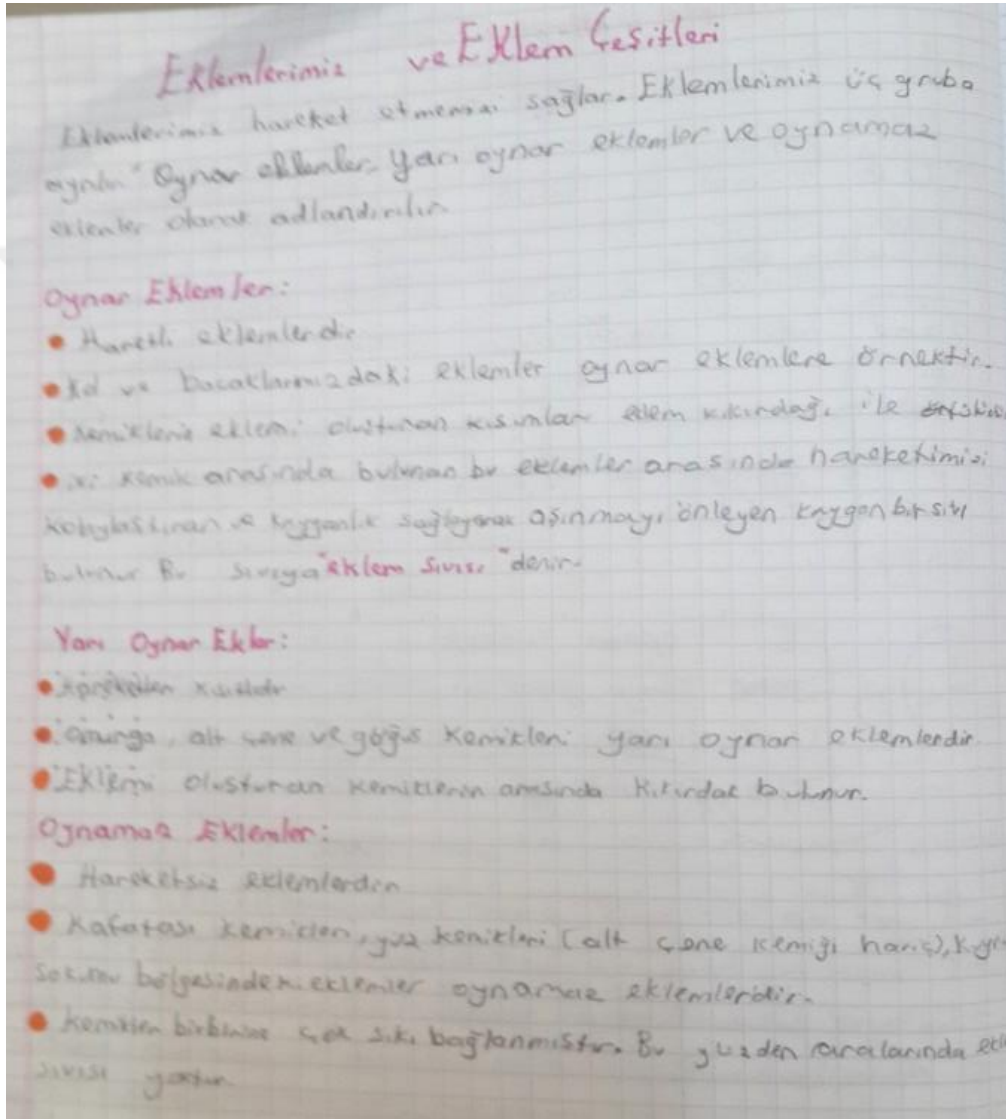 Eklemlerimiz ve Eklem Çeşitleri
Eklemlerimiz hareket etmemizi sağlar. Eklemlerimiz üç gruba
ayrılır Oynar eklemler, Yarı oynar eklemler ve oynamaz
eklemler olarak adlandırılır.
Oynar Eklemler:
Hareketli eklemlerdir
Kol ve bacaklarımızdaki eklemler oynar eklemlere örnektir.
eklemi oluşturan kısımları eklem kıkırdağı ile
iki kemik arasında bulunan bu eklemler arasında hareketimizi
kolaylaştıran ve kayganlık sağlayarak aşınmayı önleyen kaygan bir sıvı
bulunur Bu sıvıya "eklem sıvısı" denir.
Yarı Oynar Ekler:
Omurga, alt çene ve göğüs kemikleri yarı oynar eklemlerdir.
Eklemi oluşturan kemiklerin arasında kıkırdak bulunur.
Oynamaz Eklemler:
Hareketsiz eklemlerdir
Kafatası kemikleri, yüz kemikleri (alt çene kemiği hariç),
bölgesindeki eklemler oynamaz eklemlerdir.
Kemikler birbirine çok sıkı bağlanmıştır. Bu yüzden aralarında
sıvısı yoktur